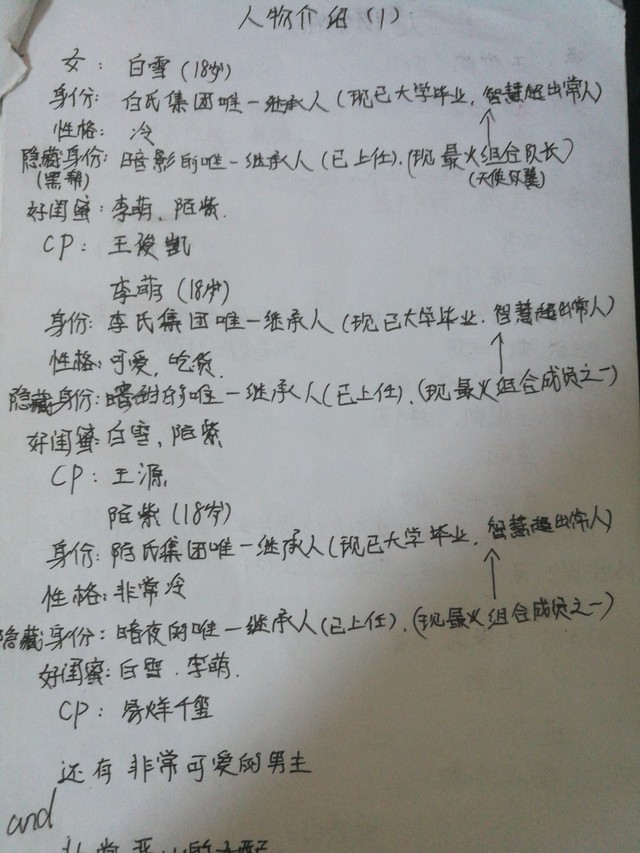 人物介绍(1)
女：白雪(18岁)
身份：白氏集团唯一继承人(现已大学毕业，智慧超出常人)
性格：冷
隐藏身份：暗影的唯一继承人(已上任).(现最火组合队长)
(黑帮) (天使双翼)
好闺蜜：李萌、陌紫.
CP：王俊凯
李萌(18岁)
身份：李氏集团唯一继承人(现已大学毕业.智慧超出常人)
性格：可爱，吃货
隐藏身份：的唯一继承人(已上任).(现最火组合成员之一)
好闺蜜：白雪，陌紫
CP：王源
陌紫(18岁)
身份：陌氏集团唯一继承人(现已大学毕业，智慧超出常人)
性格：非常冷
隐藏身份：暗夜的唯一继承人(已上任).(现最火组合成员之一)
好闺蜜：白雪.李萌.
CP：易烊千玺
还有非常可爱的男主
and